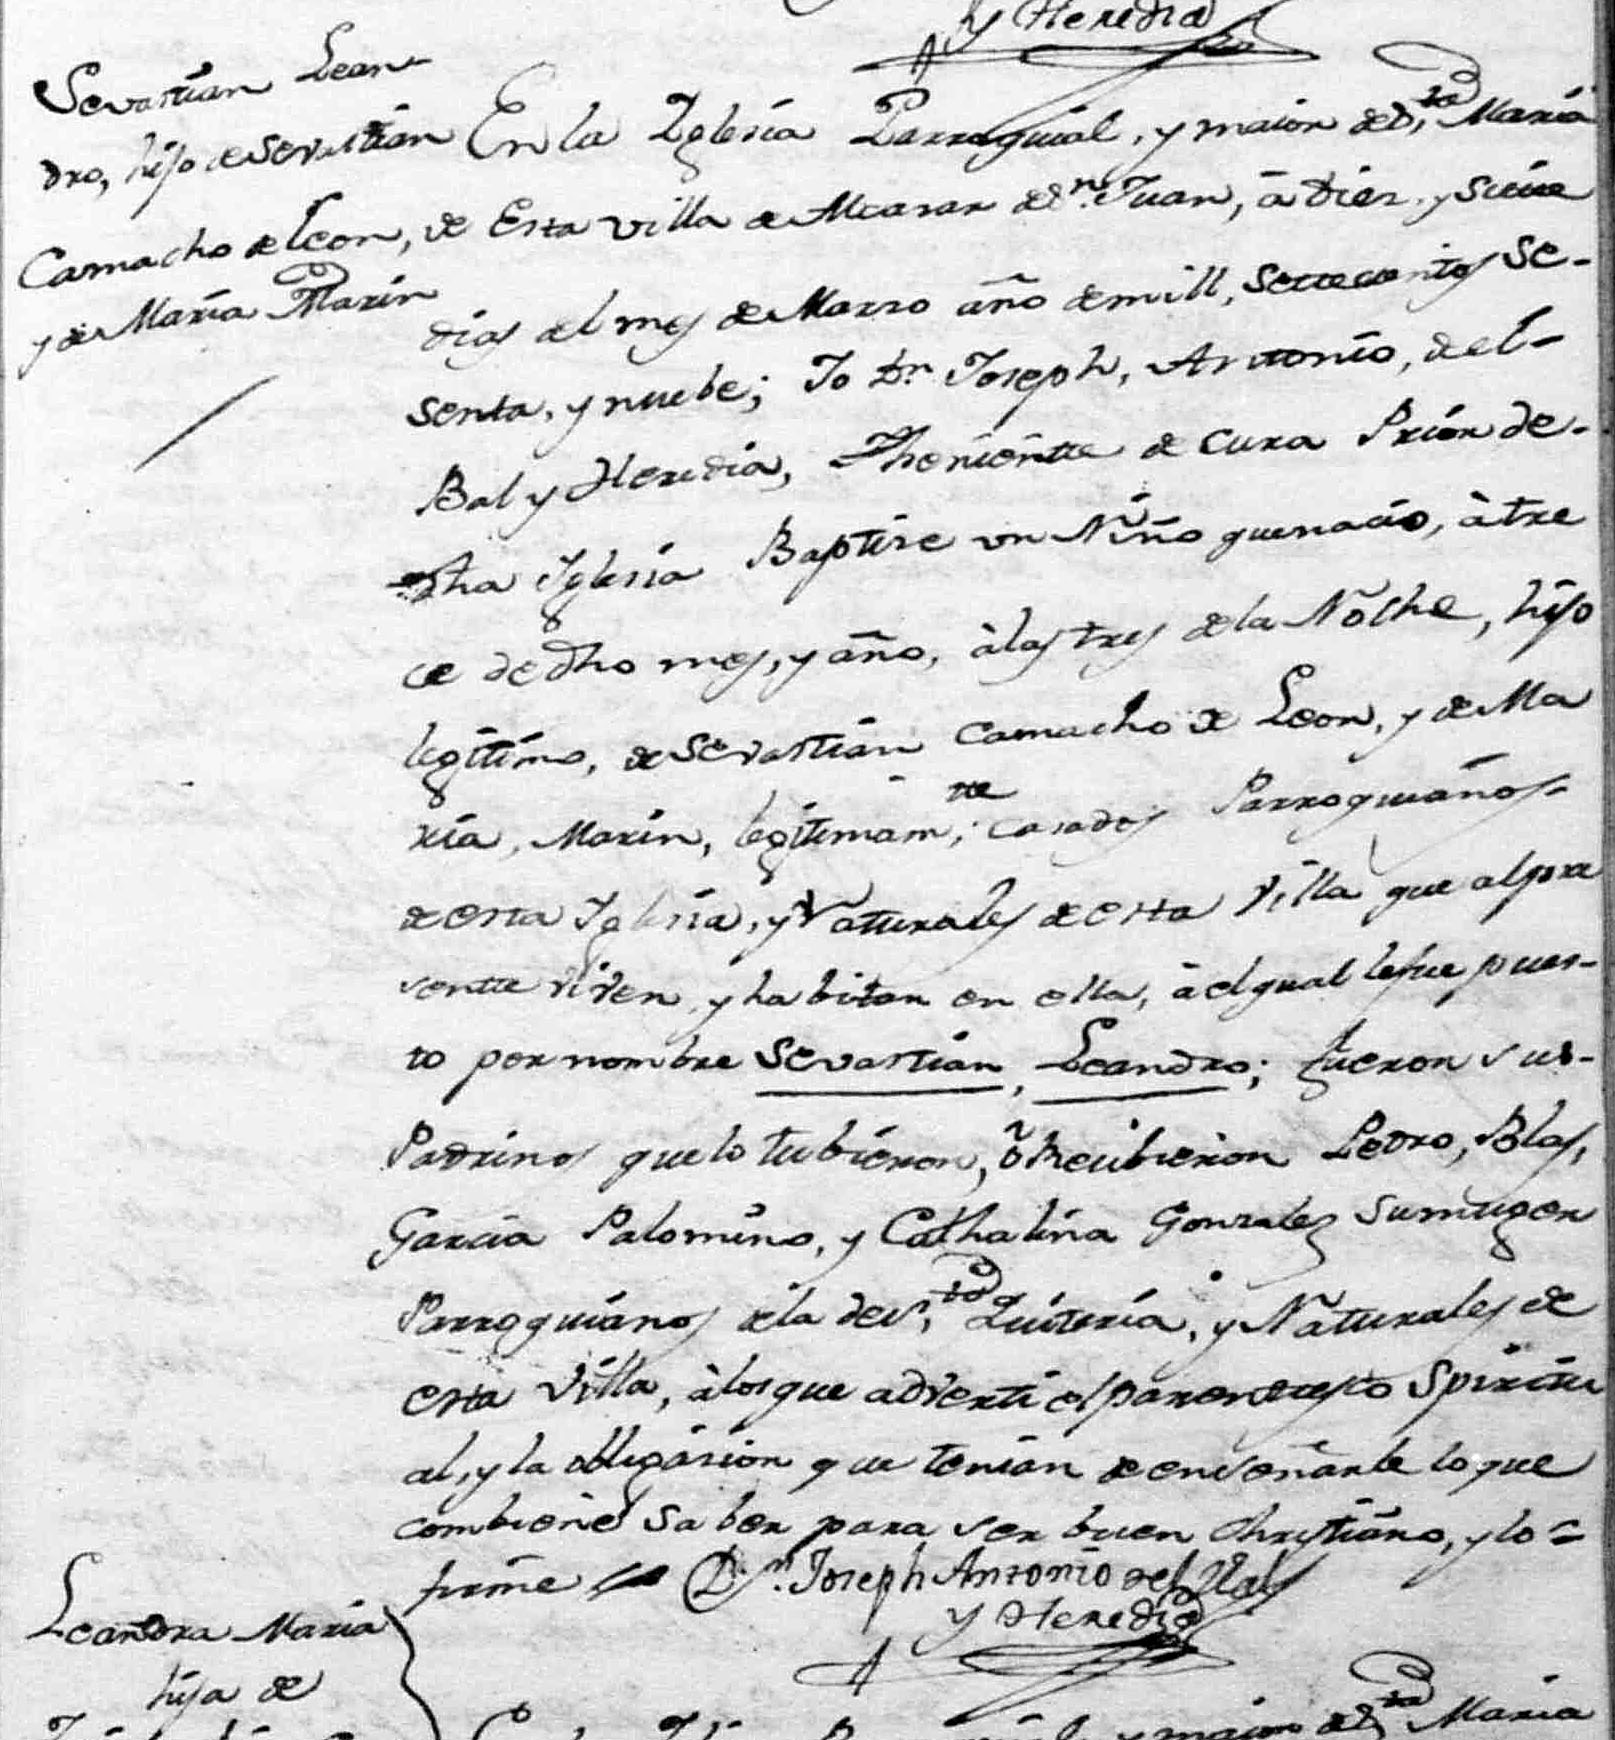 y Heredia
Sevastian Lean-
dro, hijo de Sevastian
Camacho de Leon,
y de Maria Marin
En la Iglesia Parroquial, y maior de S.ta Maria
de Esta villa de Alcasar de Sn. Juan, à dies, y siete
dias del mes de Marzo año de mill, settecientos se-
senta, y nuebe; Yo Dn Joseph, Antonio, del-
Bal y Heredia, Theniente de Cura Prior de-
dha Iglesia Baptise un Niño que nacio, à tre
ce de dho mes, y año, à las tres de la Noche, hijo
legitimo, de Sevastian Camacho de Leon, y de Ma
ria, Marin, legitimam.te casados Parroquianos-
de esta Iglesia, y Naturales de esta Villa que al pre
sentte viven, y habitan en ella, à el qual le fue pues-
to por nombre Sevastian, Leandro; fueron sus-
Padrinos que lo tubieron, ò recibieron Pedro, Blas,
Garcia Palomino, y Cathalina Gonzales su muger
Parroquianos de la de S.ta Quiteria, y Naturales de
esta Villa, à los que adverti el parentesco Spiritu
al, y la obligasion que tenian de enseñarle lo que
combiene saber para ser buen Christiano, y lo=
firme = Dn. Joseph Antonio del Val
y Heredia
Leandra Maria
hija de
y maior de S.ta Maria